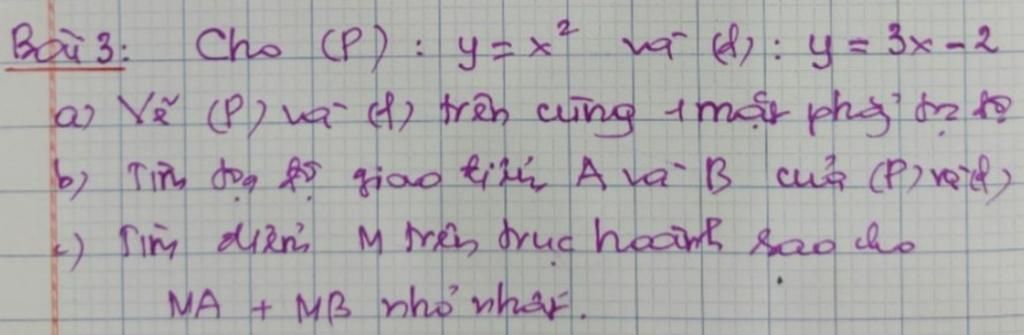 Bài 3: Cho (P): y = x² và (d): y = 3x - 2
a) Vẽ (P) và (d) trên cùng 1 mặt phẳng tọa độ
b) Tìm tọa độ giao điểm A và B của (P) và (d)
c) Tìm điểm M trên trục hoành sao cho
MA + MB nhỏ nhất.